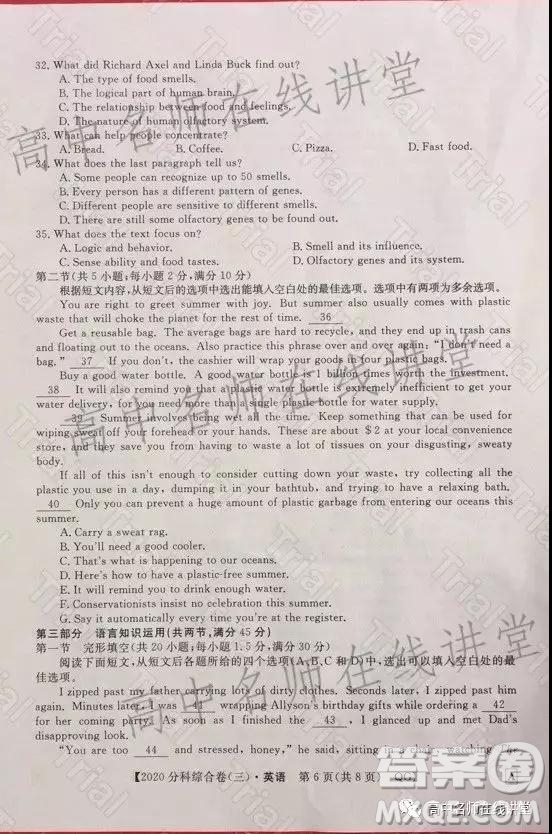 32. What did Richard Axel and Linda Buck find out?
A. The type of food smells.
B. The logical part of human brain.
C. The relationship between food and feelings.
D. The nature of human olfactory system.
33. What can help people concentrate?
A. Bread. B. Coffee. C. Pizza. D. Fast food.
34. What does the last paragraph tell us?
A. Some people can recognize up to 50 smells.
B. Every person has a different pattern of genes.
C. Different people are sensitive to different smells.
D. There are still some olfactory genes to be found out.
35. What does the text focus on?
A. Logic and behavior. B. Smell and its influence.
C. Sense ability and food tastes. D. Olfactory genes and its system.
第二节(共5小题;每小题2分,满分10分)
根据短文内容,从短文后的选项中选出能填入空白处的最佳选项。选项中有两项为多余选项。
You are right to greet summer with joy. But summer also usually comes with plastic
waste that will choke the planet for the rest of time. 36
Get a reusable bag. The average bags are hard to recycle, and they end up in trash cans
and floating out to the oceans. Also practice this phrase over and over again: "I don't need a
bag." 37 If you don't, the cashier will wrap your goods in four plastic bags.
Buy a good water bottle. A good water bottle is 1 billion times worth the investment.
38 It will also remind you that a plastic water bottle is extremely inefficient to get your
water delivery, for you need more than a single plastic bottle for water supply.
39 Summer involves being wet all the time. Keep something that can be used for
wiping sweat off your forehead or your hands. These are about $2 at your local convenience
store, and they save you from having to waste a lot of tissues on your disgusting, sweaty
body.
If all of this isn't enough to consider cutting down your waste, try collecting all the
plastic you use in a day, dumping it in your bathtub, and trying to have a relaxing bath.
40 Only you can prevent a huge amount of plastic garbage from entering our oceans this
summer.
A. Carry a sweat rag.
B. You'll need a good cooler.
C. That's what is happening to our oceans.
D. Here's how to have a plastic-free summer.
E. You can drink water from it at any time.
F. Conservationists insist no celebration this summer.
G. Say it automatically every time you're at the register.
第三部分 语言知识运用(共两节,满分45分)
第一节 完形填空(共20小题;每小题1.5分,满分30分)
阅读下面短文,从短文后各题所给的四个选项(A、B、C和D)中,选出可以填入空白处的最
佳选项。
I zipped past my father carrying lots of dirty clothes. Seconds later, I zipped past him
again. Minutes later, I was 41 wrapping Allyson's birthday gifts while ordering a 42
for her coming party. As soon as I finished the 43, I glanced up and met Dad's
disapproving look.
"You are too 44 and stressed, honey," he said, sitting in a chair watching me.
【2020分科综合卷(三)·英语 第6页(共8页) QG】
高中名师在线讲堂
高中名师在线讲堂
高中名师在线讲堂
Trial
答案圈
高中名师在线讲堂